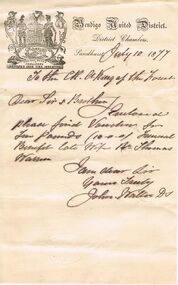 Bendigo United District.
District Chambers,
Sandhurst July 10 1877
To the CR. of King of the Forest
Dear Sir & Brother
Enclosed
please find Voucher for
Ten pounds 10-0-0 of Funeral
Benefit late Wife Bro Thomas
Warren
I am dear Sir
Yours Truly
John DS